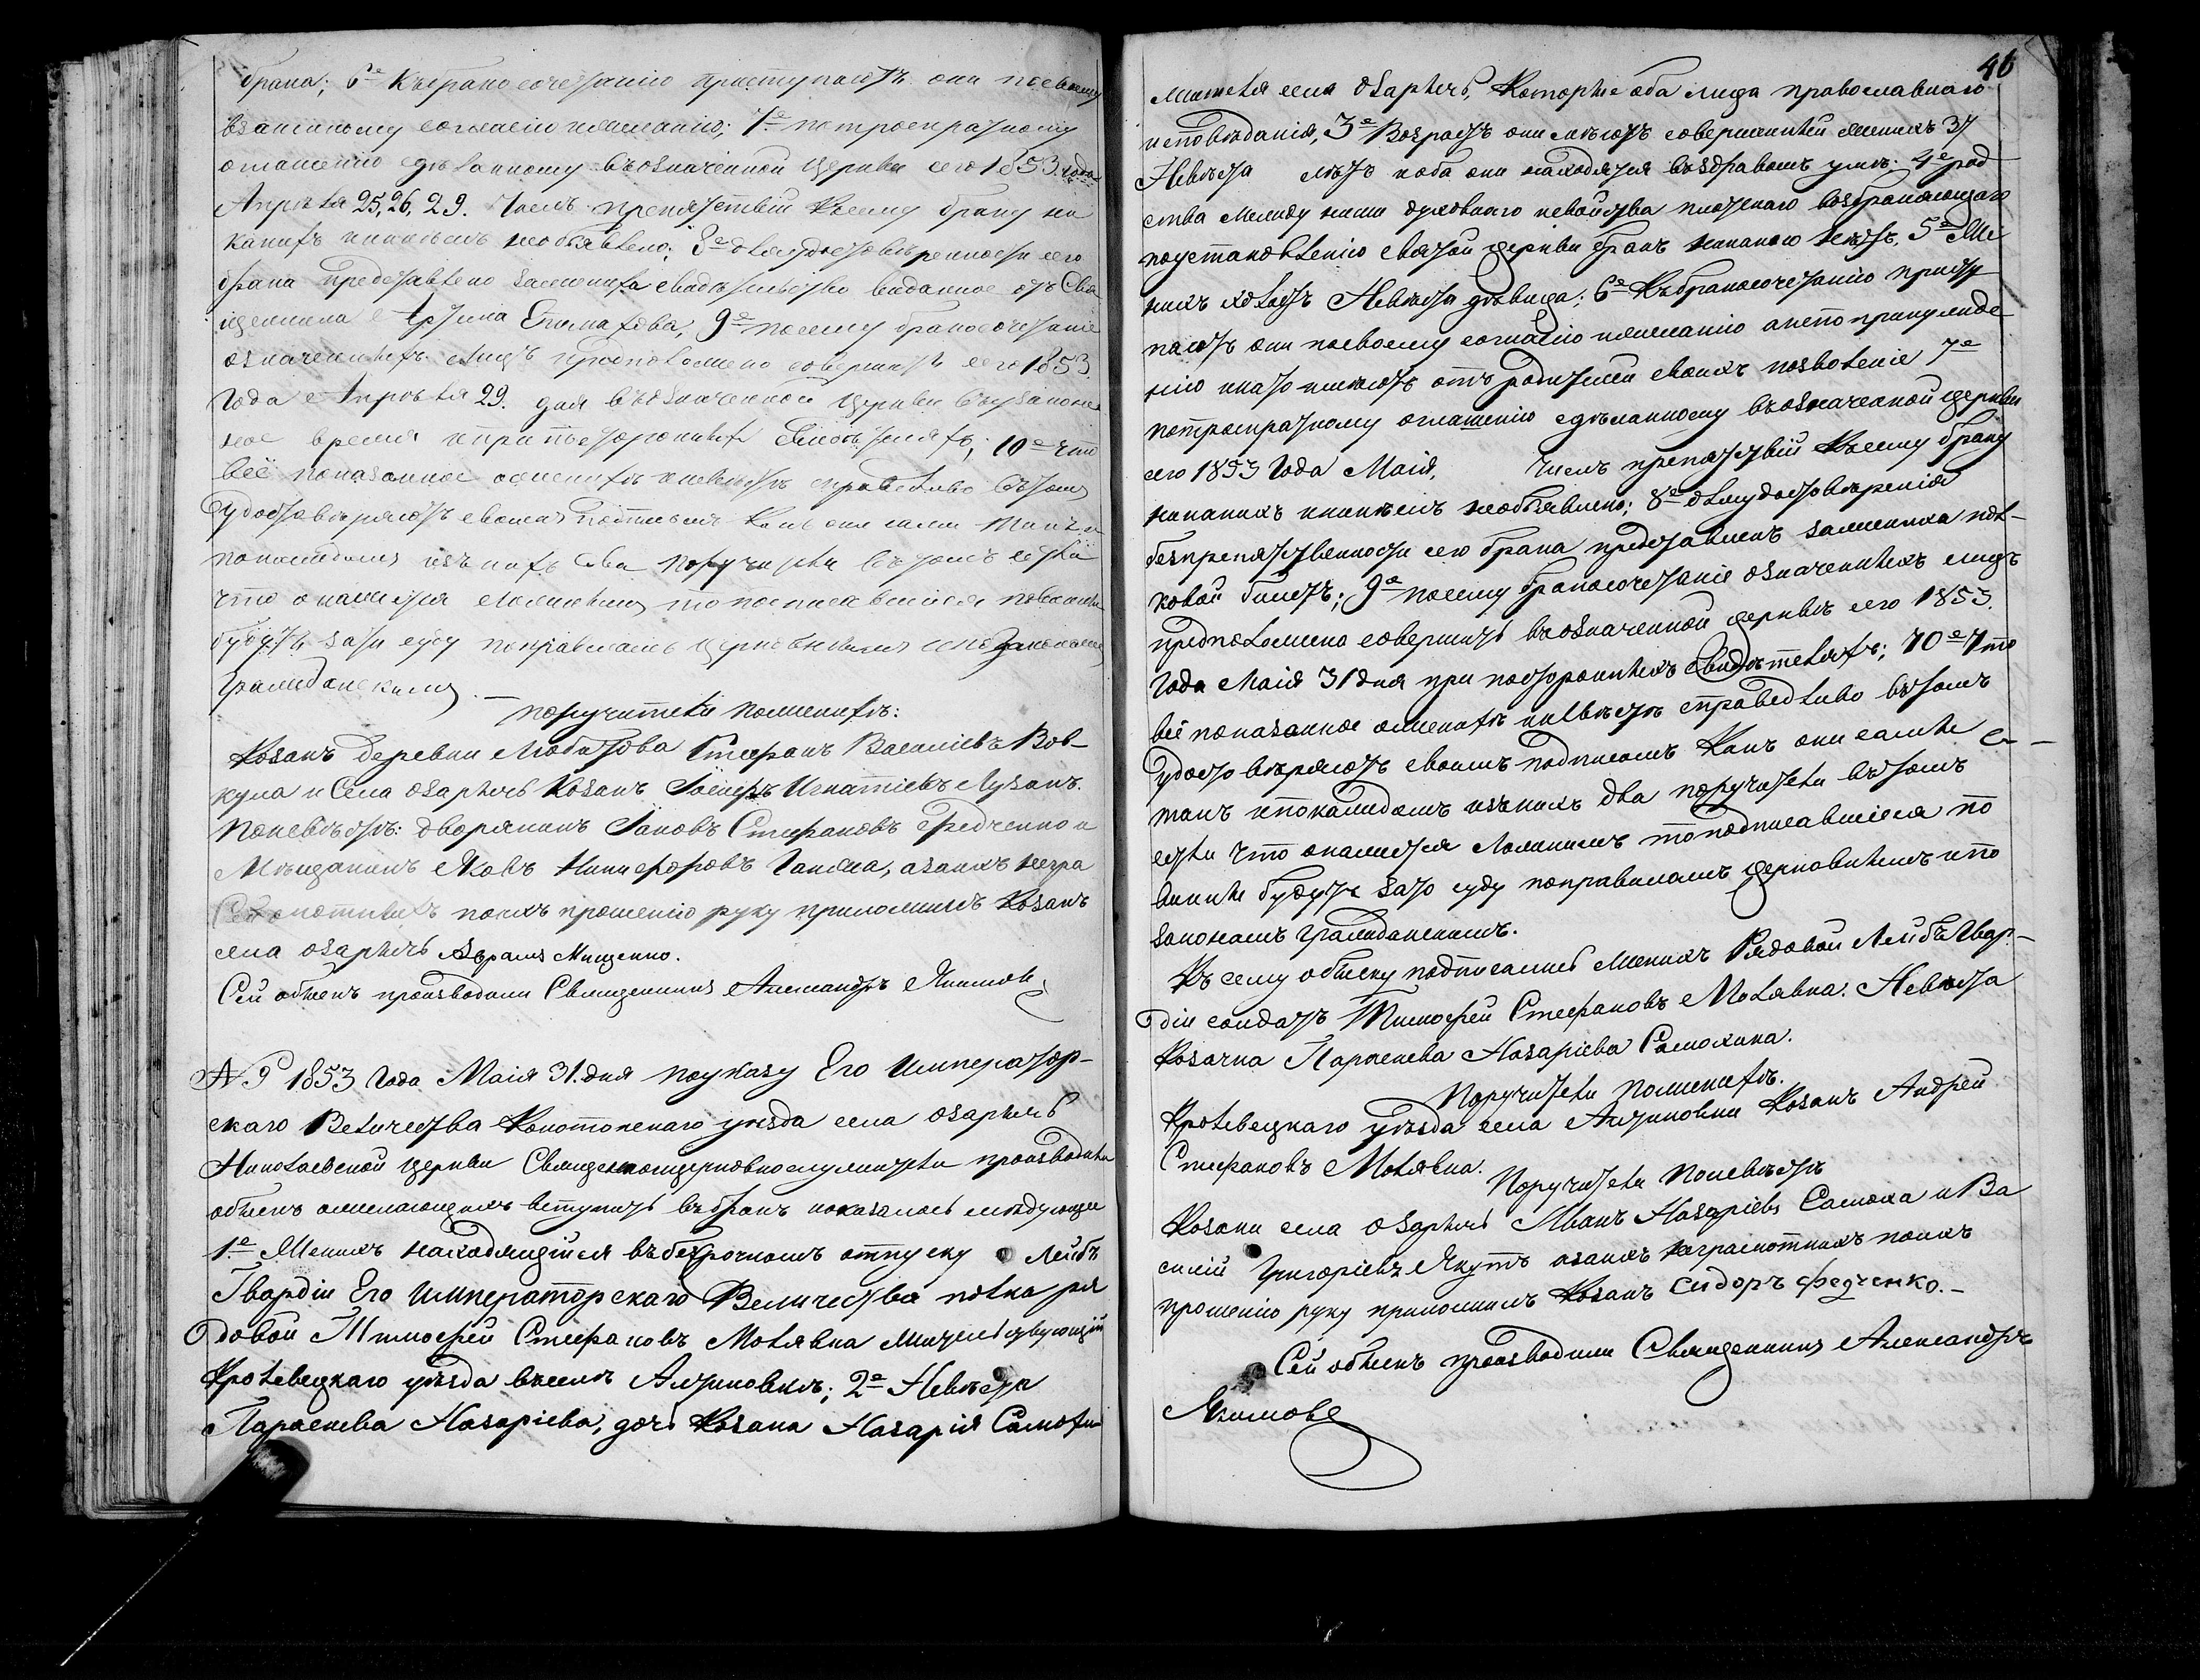 брака; 6е Къбракосочетанію приступаютъ они посвоему
взаимному согласію ижеланію; 7е потроекратному
оглашенію зделанному въозначенной Церкви сего 1853 года
Апреля 25, 26, 29. Числъ препятствій Ксему браку ни
какихъ никемъ необъявлено; 8е длядостоверности сего
брака представлено Свидетельство виданное отъ Свя
щенника 9е посему бракосочетаніе
означеннихъ лицъ предположено совершить сего 1853
Года Апреля 29. дня въозначенной Церкви въузаконен
ное время и при постороннихъ свидетеляхъ; 10е что
всё показанное оженихе иневесте справедливо въ томъ
удостоверяютъ своимъ подписомъ Какъ они сами такъ и
покаждомъ изъ нихъ два поручители въ томъ если
что окажется ложнымъ то подписавшіися повинни
будутъ зато суду поправиламъ церковнымъ ипозаконамъ
Гражданскимъ. —
поручители поженихе:
Козакъ деревни Любитова Стефанъ Василіевъ Вов-
кула и Села Озаричъ Козакъ Іосифъ Игнатіевъ Лузанъ.
Поневесте: дворянинъ Іаковъ Стефановъ Федченко и
Мещанинъ Яковъ Никифоровъ Ганжа, азанихъ негра
мотнихъ поихъ прошенію руку приложилъ Козакъ
села Озаричъ Абрамъ Мищенко.
Сей обыскъ производилъ Священникъ Александръ Якимовъ
№ 9 1853 Года Маія 31. дня поуказу Его Император-
скаго Величества Конотопскаго уезда села Озаричъ
Николаевской церкви Священноицерковнослужители производили
обыскъ ожелающихъ вступить въбракъ иоказалось следующее
1.е Женихъ находящійся въбезсрочномъ отпуску Лейбъ
Гвардіи Его Императорскаго Величества полка ря
довой Тимофей Стефановъ Молявка жительствующій
Кролевецкаго уезда вселе Алтиновке; 2е Невеста
Параскева Назаріева, дочь Козака Назарія Самохи
46
жителя села Озаричъ, Которые оба лица православнаго
исповеданія, 3е Возрастъ они имеютъ совершенный женихъ 37
Невеста летъ иоба они находятся въздравомъ уме; 4е род
ства между ними духовнаго исвойства плотскаго возбраняющаго
поустановленію святой церкви бракъ никакого нетъ, 5е Же
нихъ холостъ Невеста девица; 6е Къбракосочетанію присту
паютъ они посвоему согласію ижеланію анепо принужде
нію инато имеютъ отъ родителей своихъ позволеніе 7е
потроекратному оглашенію зделанному въозначенной церкви
сего 1853 Года Маія, Числъ препятствій Ксему браку
никакихъ никемъ необъявлено; 8е длядостоверенія
безпрепятственности сего брака представленъ жениха пол-
ковой билетъ; 9е посему бракосочетаніе означеннихъ лицъ
предположено совершить въозначенной церкве сего 1853.
Года Маія 31 дня при постороннихъ свидетеляхъ; 10е что
всё показанное оженихе иневесте справедливо въ томъ
удостоверяютъ своимъ подписомъ Какъ они самы
такъ ипокаждомъ изъ нихъ два поручители въ томъ
если что окажется ложнымъ топодписавшіися по
винны будутъ зато суду поправиламъ церковнымъ ипо
законамъ гражданскимъ.
Къ сему обыску подписались женихъ Рядовой Лейбъ Гвар-
діи солдатъ Тимофей Стефановъ Молявка. Невеста
Козачка Параскева Назаріева Самохина.
Поручители поженихе.
Кролевецкаго уезда села Алтиновки Козакъ Андрей
Стефановъ Молявка.
Поручители поневесте
Козаки села Озаричъ Иванъ Назаріевъ Самоха и Ва
силій Григоріевъ Якутъ азанихъ неграмотнихъ поихъ
прошенію руку приложилъ Козакъ Сидоръ Федченко. —
Сей обыскъ производилъ Священникъ Александръ
Якимовъ